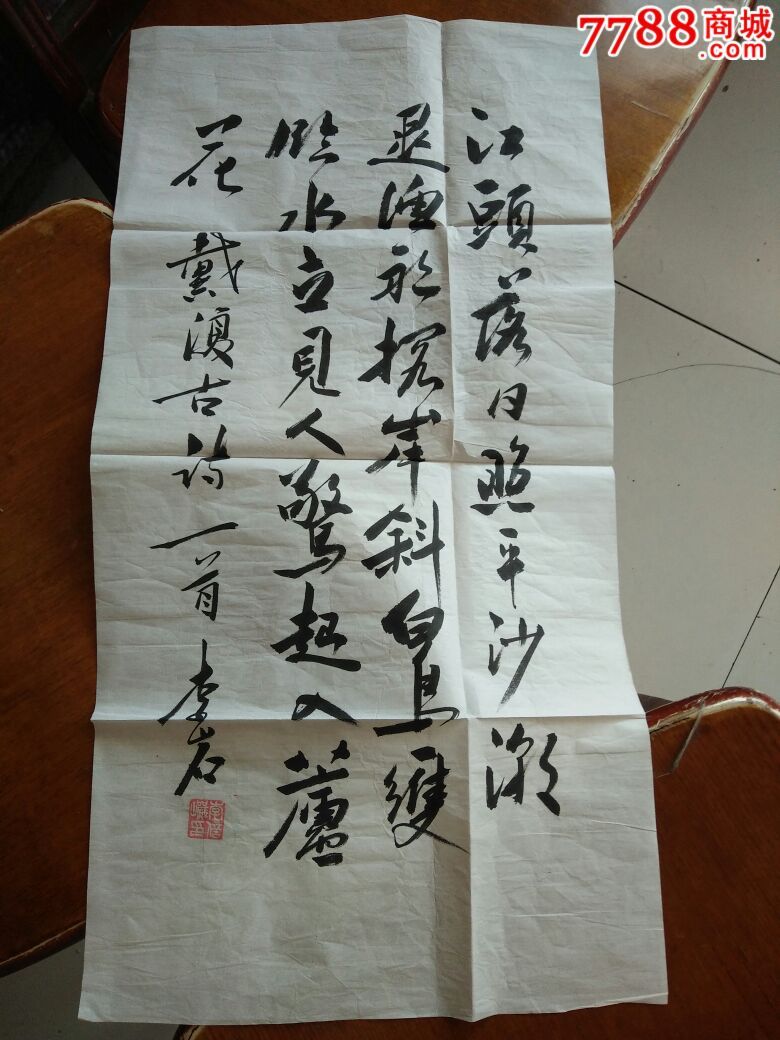 7788商城
.com
江頭落日照平沙潮
退漁船擱岸斜白鳥一雙
臨水立見人驚起入蘆
花 戴復古詩一首 李岩